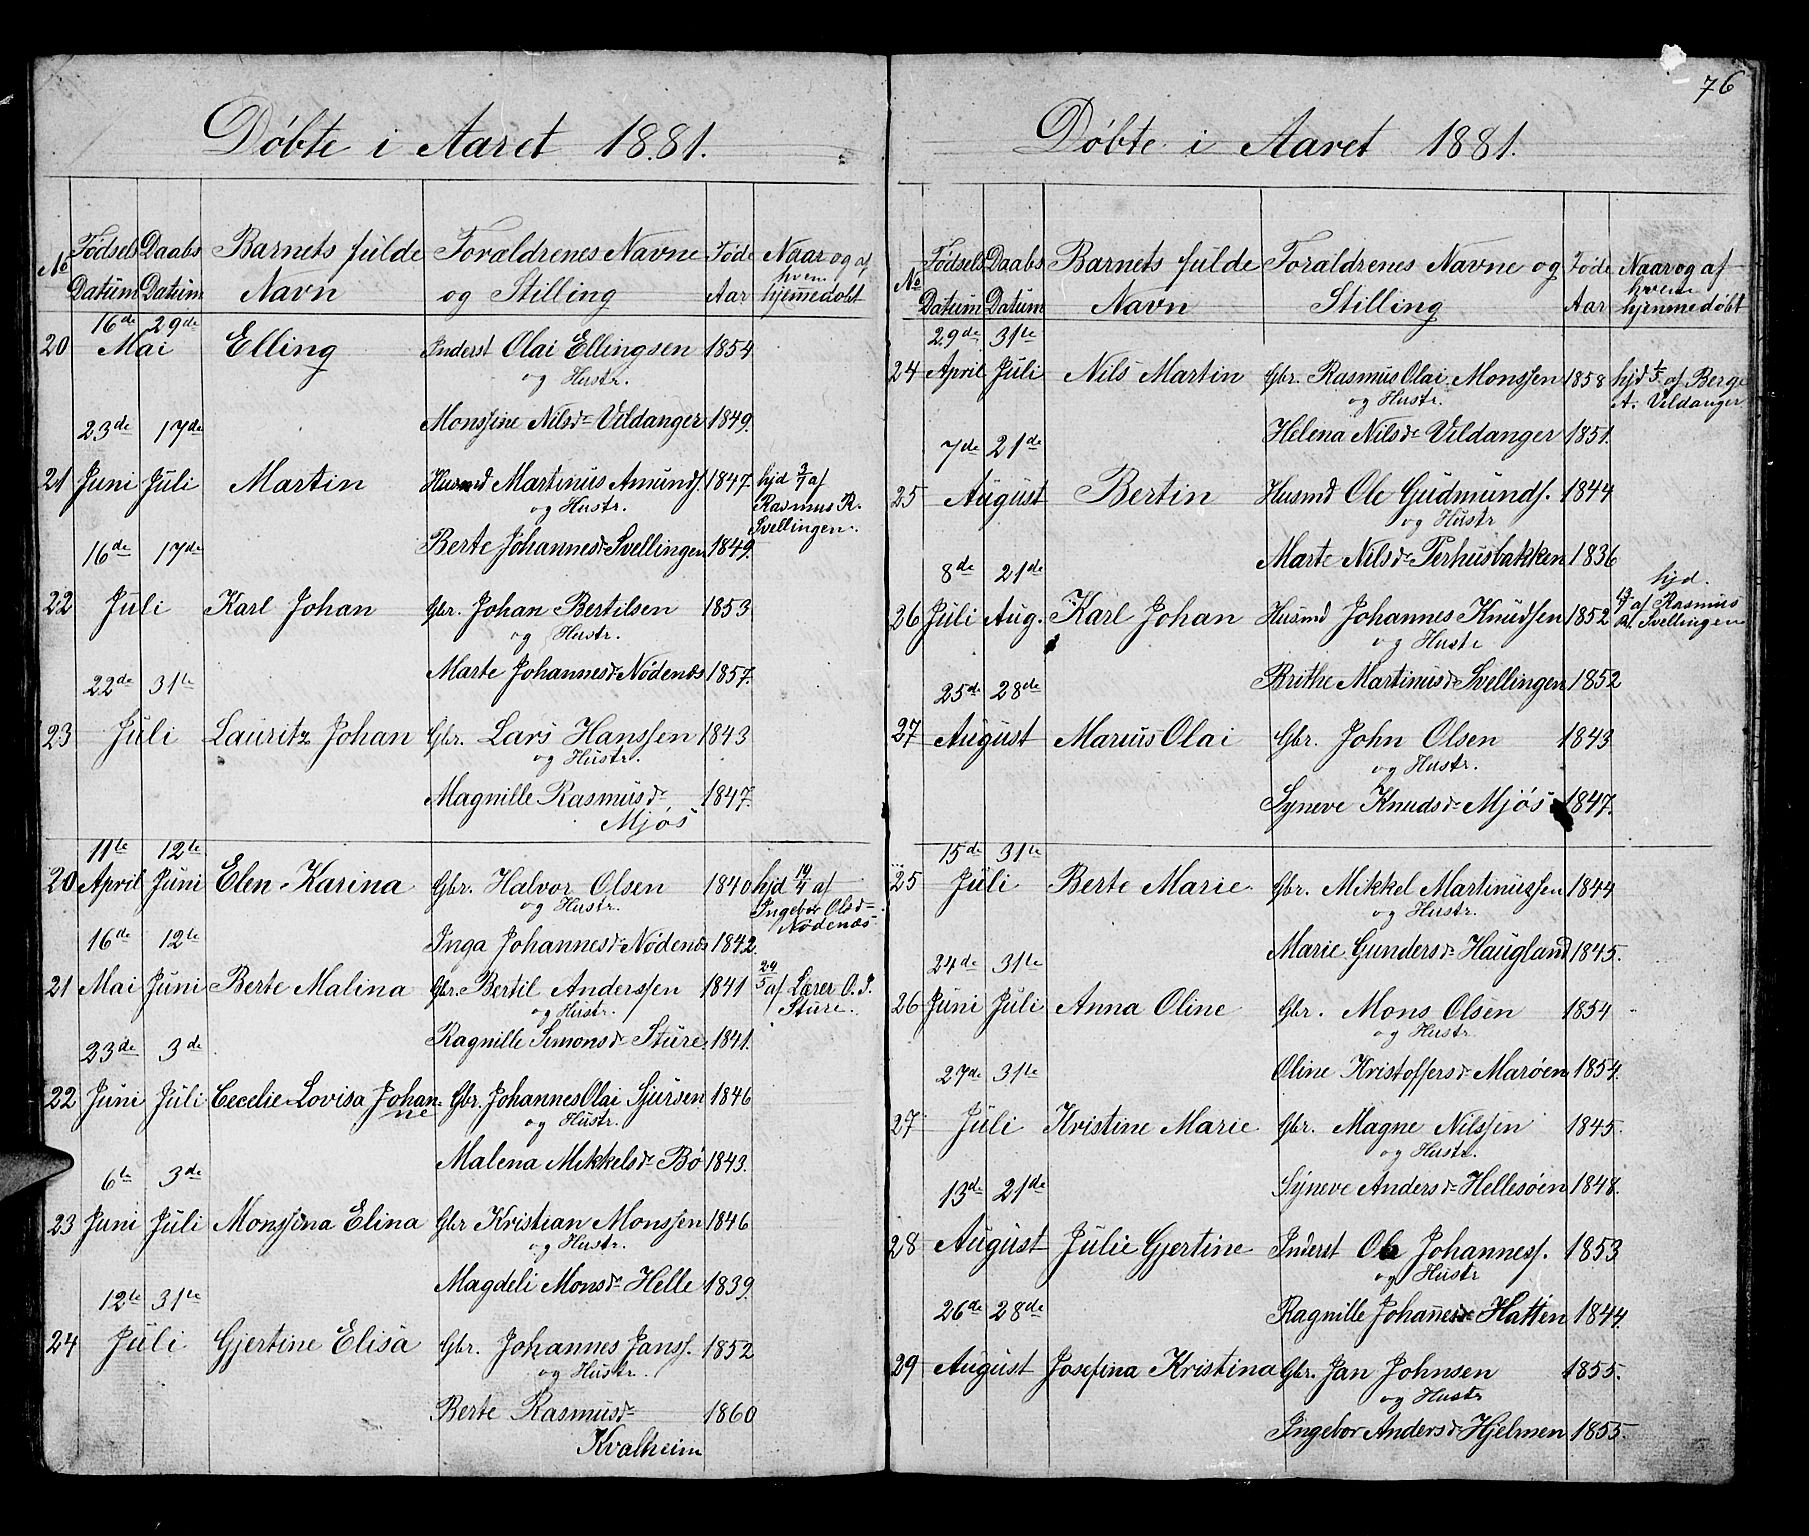 Døbte i Aaret 1881.
No Fødsels Daabs Barnets fulde Forældrenes Navne Føde Naar og af
hvem
Datum Datum Navn og Stilling Aar hjemmedøbt
16de 29de
20 Mai Elling Inderst Olai Ellingsen 1854
og Hustr.
Monssine Nilsdr Vildanger 1849.
23de 17de
21 Juni Juli Martin Husmd Martinus Amunds. 1847. hjd 3/7 af
og Hustr. Rasmus R.
Svellingen.
Berte Johannesdr Svellingen 1849.
16de 17de
22 Juli Karl Johan Gbr. Johan Bertilsen 1853
og Hustr.
Marte Johannesdr Nødenæs 1857.
22de 31te
23 Juli Lauritz Johan Gbr. Lars Hanssen 1843
og Hustr.
Magnille Rasmusdr 1847.
Mjøs
11te 12te
20 April Juni Elen Karina Gbr. Halvor Olsen 1840 hjd 19/4 af
og Hustr. Ingebor Olsdr
Nødenæs
16de 12te Inga Johannesdr Nødenæs 1842.
21 Mai Juni Berte Malina Gbr. Bertil Anderssen 1841 29/5 af Lærer O. J.
og Hustr. Sture.
Ragnille Simonsdr Sture 1841.
23de 3de
22 Juni Juli Cecelie Lovisa Johan- Gbr. Johannes Olai Sjursen 1846
ne og Hustr.
Malena Mikkelsdr Bø 1843.
6te 3de
23 Juni Juli Monssina Elina Gbr Kristian Monssen 1846
og Hustr.
Magdeli Monsdr Helle 1839.
12te 31te
24 Juli Gjertine Elisa Gbr. Johannes Janss. 1852
og Hustr.
Berte Rasmusdr 1860
Kvalheim
76
Døbte i Aaret 1881.
No Fødsels Daabs Barnets fulde Forældrenes Navne og Føde Naar og af
hvem
Datum Datum Navn Stilling Aar hjemmedøbt
29de 31te
24 April Juli Nils Martin Gbr. Rasmus Olai Monssen 1858 hjd 1/5 af Berge
og Hustr. A. Vildanger
Helena Nilsdr Vildanger 1851.
7de 21de
25 August Bertin Husmd Ole Gudmunds. 1844
og Hustr
Marte Nilsdr Terhusbakken 1836
8de 21de hjd.
26 Juli Aug. Karl Johan Husmd Johannes Knudsen 1852 af Rasmus
og Hustr R. Svellingen
Brithe Martinusdr Svellingen 1852
25de 28de
27 August Marius Olai Gbr. John Olsen 1843
og Hustr.
Syneve Knudsdr Mjøs 1847.
15de 31te
25 Juli Berte Marie Gbr. Mikkel Martinussen 1844
og Hustr.
Marie Gundersdr Haugland 1845.
24de 31te
26 Juni Juli Anna Oline Gbr. Mons Olsen 1854
og Hustr
Oline Kristoffersdr Marøen 1854.
27de 31te
27 Juli Kristine Marie Gbr. Magne Nilssen 1845.
og Hustr.
Syneve Andersdr Hellesøen 1848.
13de 21de
28 August Julie Gjertine Inderst Ole Johanness. 1853
og Hustr
Ragnille Johannesdr Hatten 1844.
26de 28de
29 August Josefina Kristina Gbr. Jan Johnsen 1855.
og Hustr
Ingebor Andersdr Hjelmen 1855.